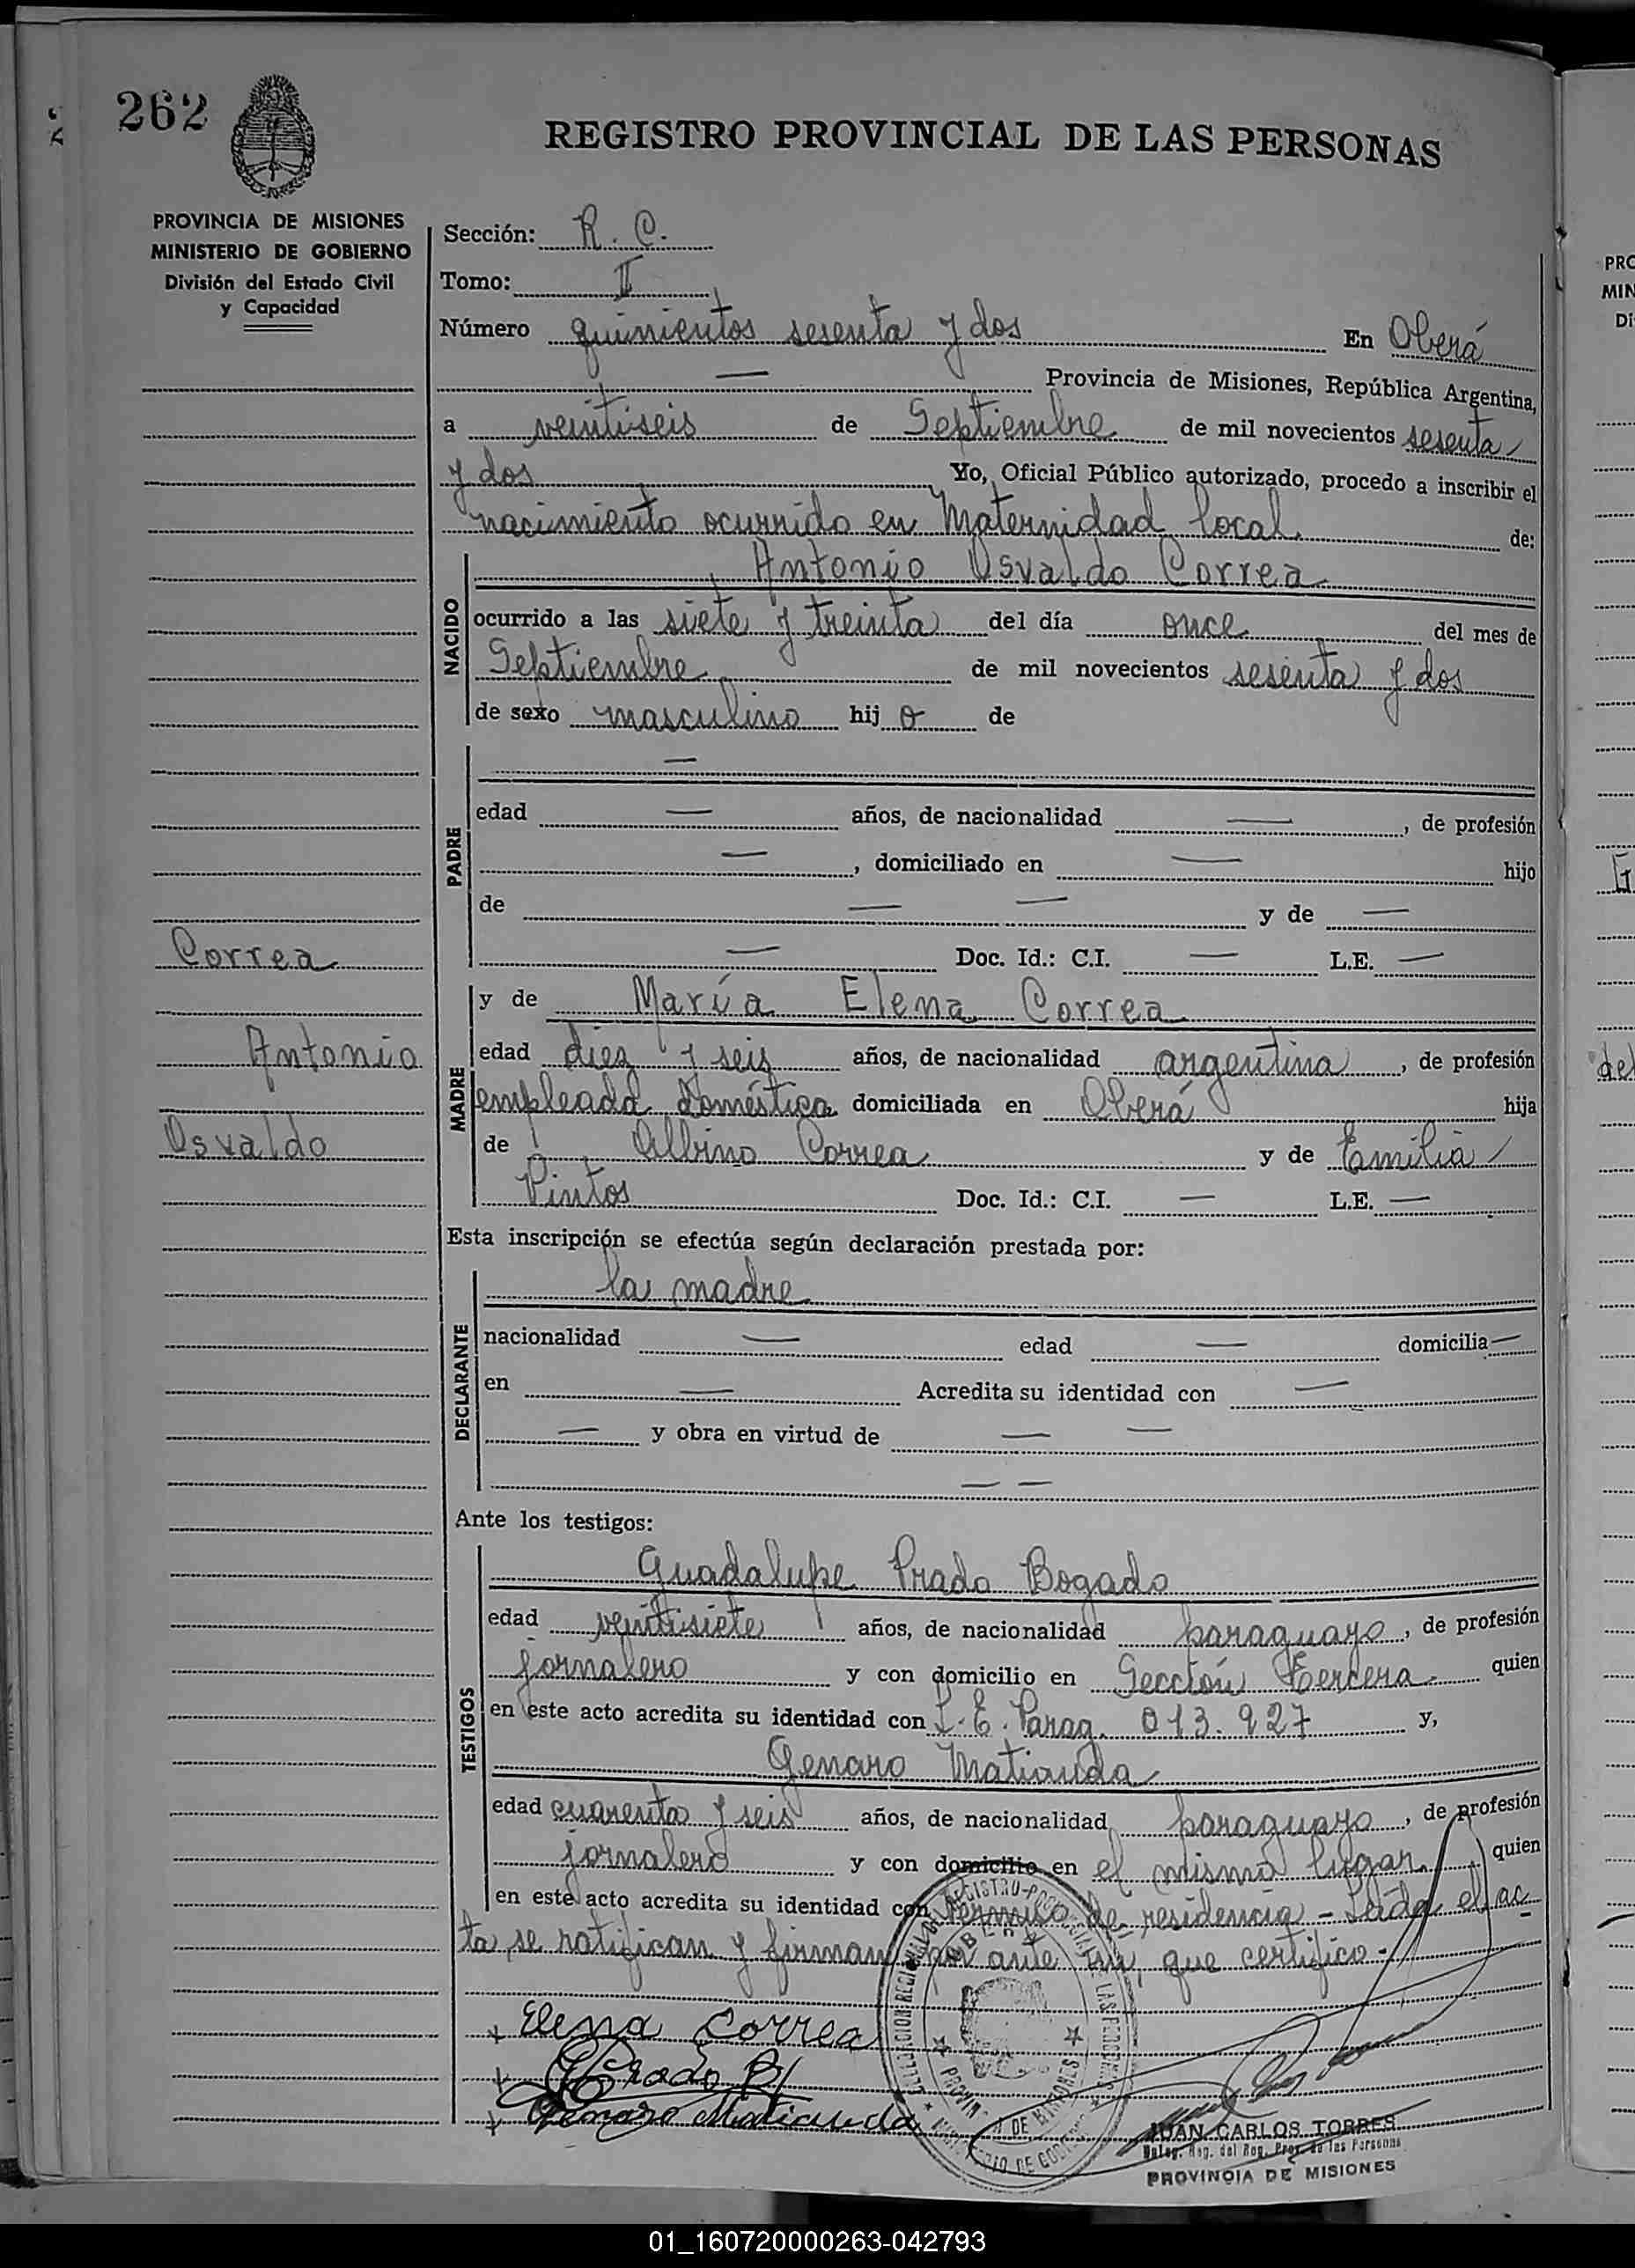 262
REGISTRO PROVINCIAL DE LAS PERSONAS
PROVINCIA DE MISIONES
MINISTERIO DE GOBIERNO
División del Estado Civil
y Capacidad
Sección: R. C.
Tomo: II
Número quinientos sesenta y dos En Oberá
— Provincia de Misiones, República Argentina,
a veintiseis de Septiembre de mil novecientos sesenta
y dos Yo, Oficial Público autorizado, procedo a inscribir el
nacimiento ocurrido en Maternidad local de:
Antonio Osvaldo Correa
NACIDO
ocurrido a las siete y treinta del día once del mes de
Septiembre de mil novecientos sesenta y dos
de sexo masculino hij o de
PADRE
—
edad — años, de nacionalidad —, de profesión
—, domiciliado en — hijo
de — — y de —
— Doc. Id.: C.I. — L.E. —
Correa
Antonio
Osvaldo
MADRE
y de María Elena Correa
edad diez y seis años, de nacionalidad argentina, de profesión
empleada doméstica domiciliada en Oberá hija
de Albino Correa y de Emilia
Pintos Doc. Id.: C.I. — L.E. —
Esta inscripción se efectúa según declaración prestada por:
DECLARANTE
la madre
nacionalidad — edad — domicilia —
en — Acredita su identidad con —
— y obra en virtud de — —
— —
Ante los testigos:
TESTIGOS
Guadalupe Prado Bogado
edad veintisiete años, de nacionalidad paraguayo, de profesión
jornalero y con domicilio en Sección Tercera quien
en este acto acredita su identidad con L.E. Parag. 013.927 y,
Genaro Matiauda
edad cuarenta y seis años, de nacionalidad paraguayo, de profesión
jornalero y con domicilio en el mismo lugar. quien
en este acto acredita su identidad con permiso de residencia - Leída el ac
ta, se ratifican y firman por ante mí, que certifico.-
Elena Correa
G Prado B
Genaro Matiauda
JUAN CARLOS TORRES
Deleg. Reg. del Reg. Prov. de las Personas
PROVINCIA DE MISIONES
PRO
MIN
Di
del
01_160720000263-042793